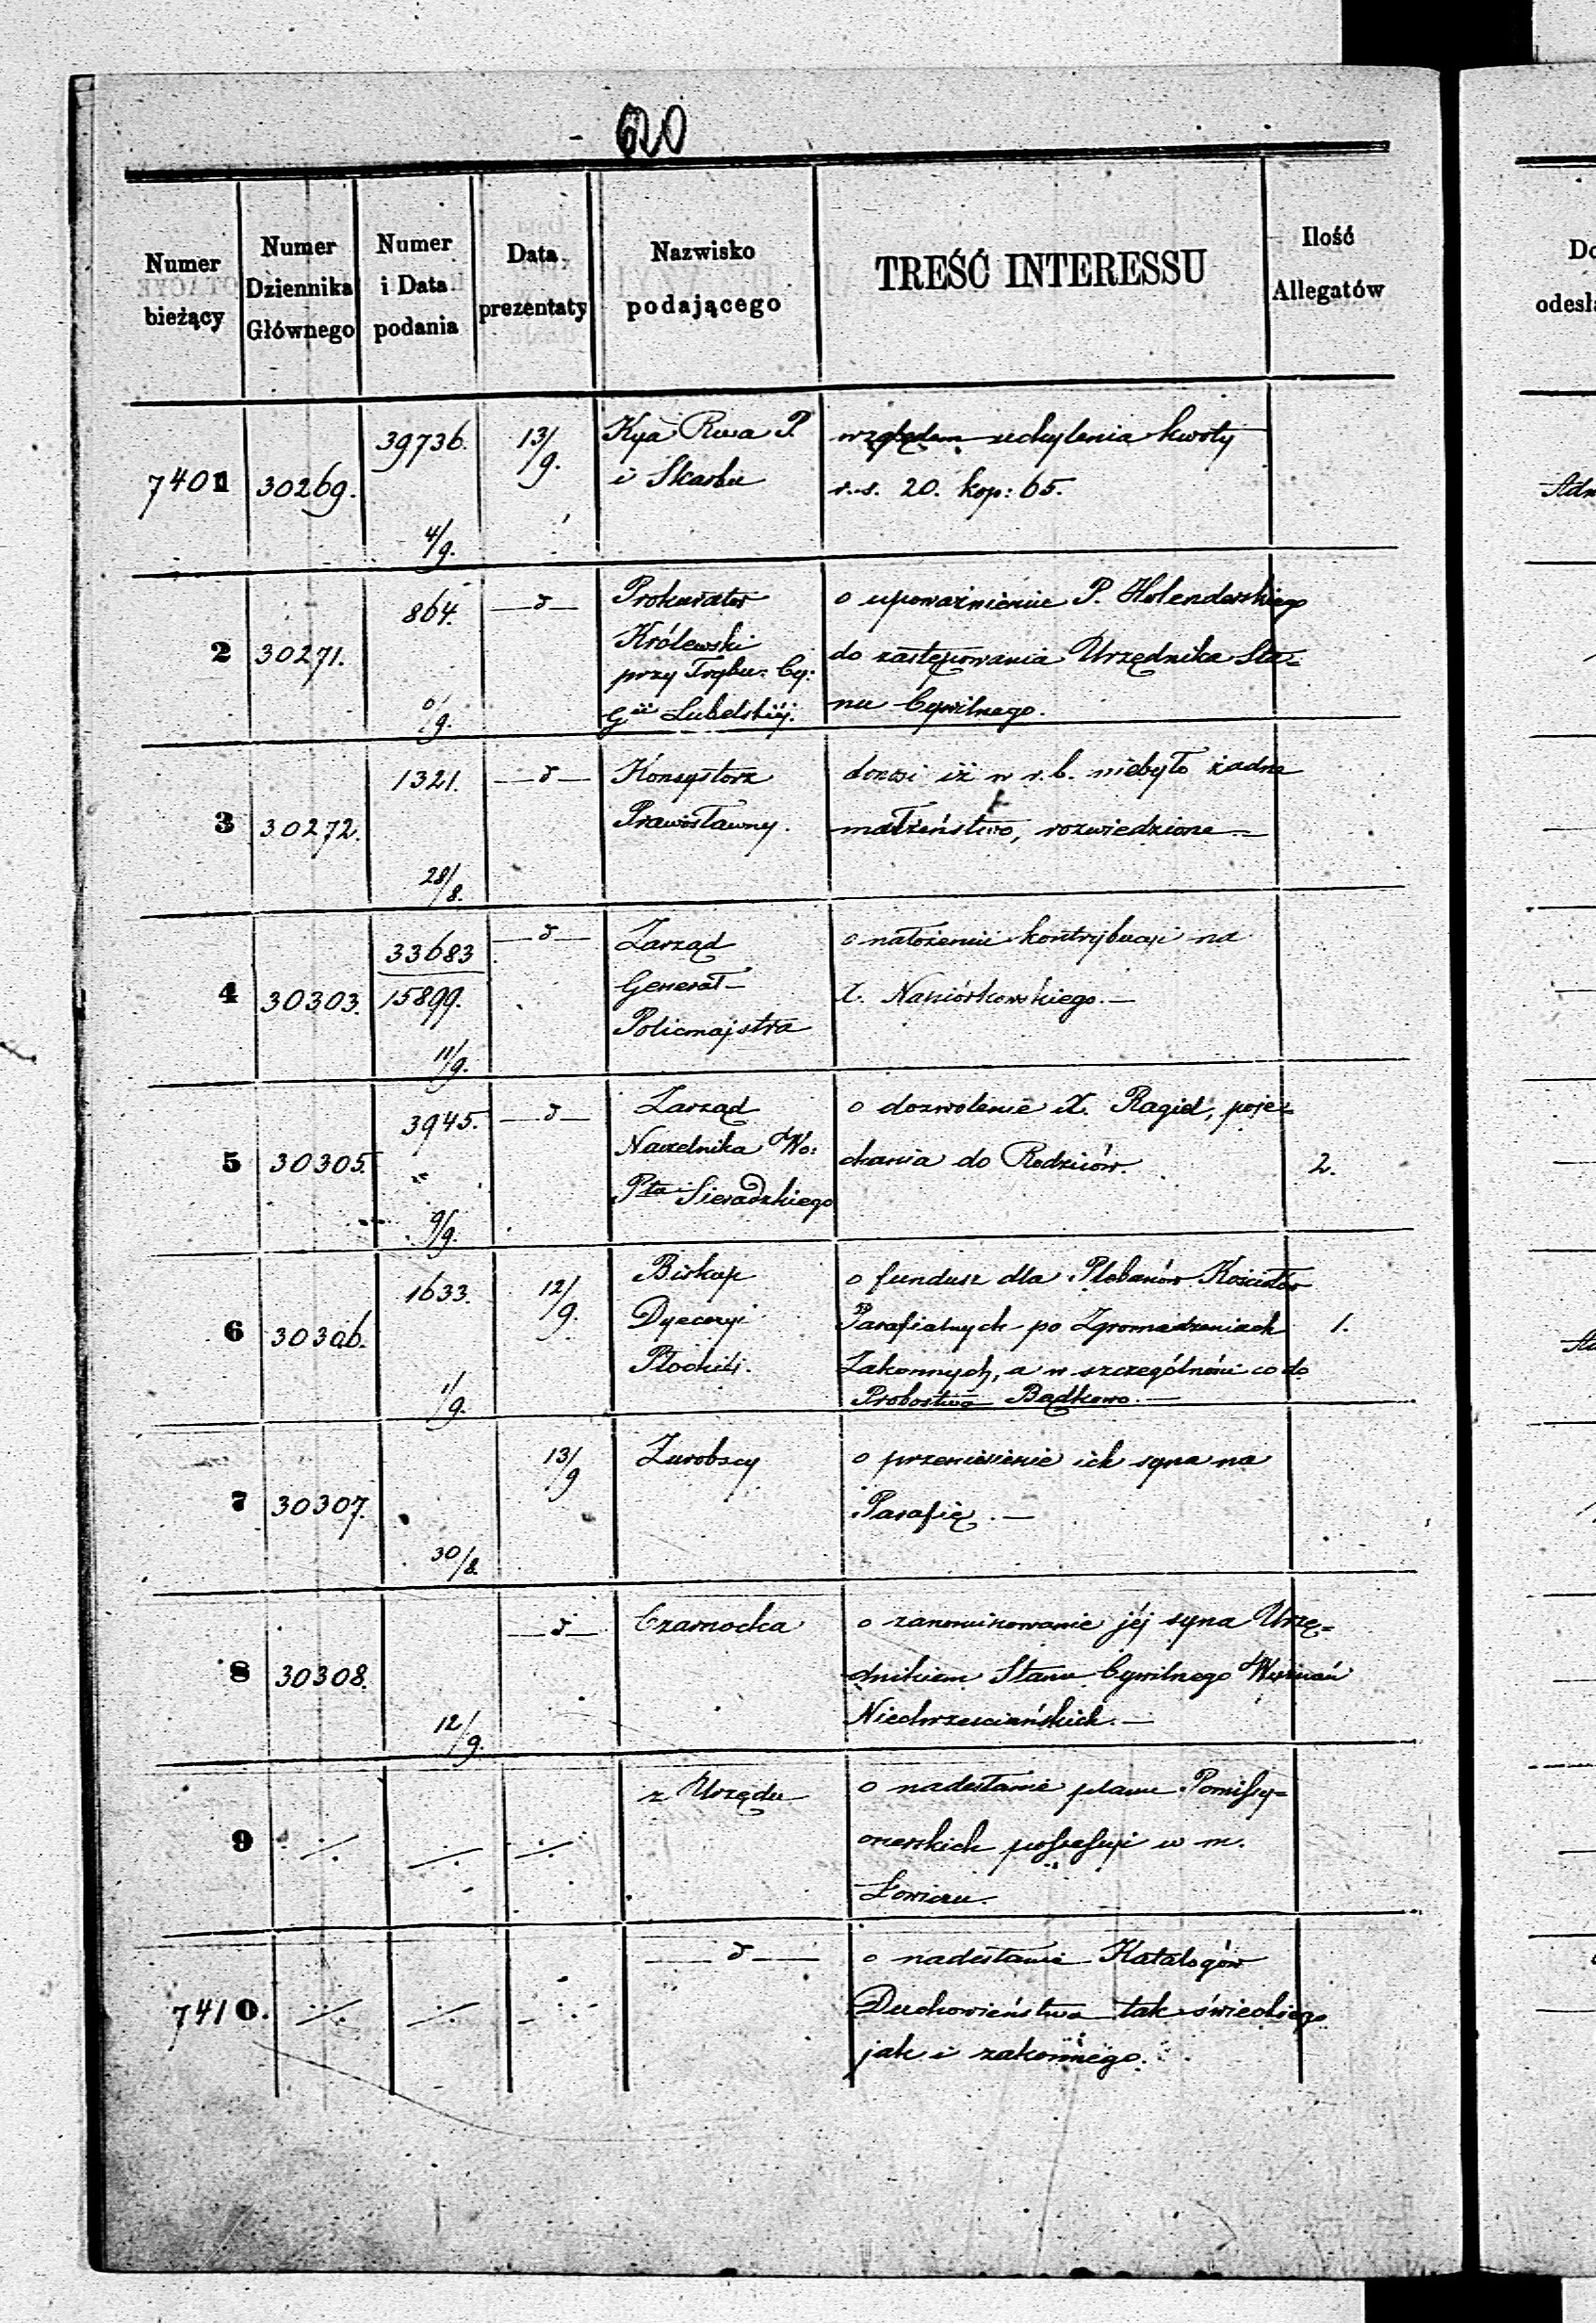 620
Numer bieżący
Numer Dziennika Głównego
Numer i Data podania
Data prezentaty
Nazwisko podającego
TREŚĆ INTERESSU
Ilość Allegatów
7401
30269.
39736.
4/9.
13/9.
Kya Rwa P.
i Skarbu
względem uchylenia kwoty
r.s. 20. kop: 65.
2
30271.
864.
/9.
—d—
Prokurator
Królewski
przy Trybu: Cy:
Gii Lubelskiéj.
o upoważnienie P. Holenderskiego
do zastępowania Urzędnika Sta-
nu Cywilnego.
3
30272.
1321.
28/8.
—d—
Konsystorz
Prawosławny.
donosi iż w r.b. niebyło żadne
małżeństwo, rozwiedzione
4
30303.
33683
15899.
11/9.
—d—
Zarząd
Generał-
Policmajstra
o nałożeniu kontrybucyi na
X. Nasiórkowskiego.—
5
30305.
3945.
9/9.
—d—
Zarząd
Naczelnika Wo:
Pta Sieradzkiego
o dozwolenie X. Ragiel, poje-
chania do Rodziców.
2.
6
30306.
1633.
1/9.
12/9.
Biskup
Dyecezyi
Płockiéj.
o fundusz dla Plebanów Kościołów
Parafialnych po Zgromadzeniach
Zakonnych, a w szczególności co do
Probostwa Bądkowo.—
1.
7
30307.
30/8.
13/9
Zurobscy
o przeniesienie ich syna na
Parafię.—
8
30308.
12/9.
—d—
Czarnocka
o zanominowanie jéj syna Urzę-
dnikiem Stanu Cywilnego Wyznań
Niechrześciańskich.—
9
z Urzędu
o nadesłanie planu Pomissy-
onerskich possessyi w m.
Łowiczu.
7410.
—d—
o nadesłanie Katalogów
Duchowieństwa tak świeckiego
jak i zakonnego.
Do
odesł